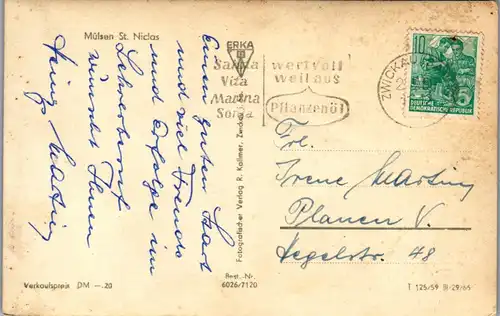 Mülsen St. Niclas
Einen guten Start
und viel Freude
und Erfolge im
Lehrerberuf
wünscht Ihnen
Heinz Martin
Verkaufspreis DM —.20
ERKA
Fotografischer Verlag R. Kallmer, Zwickau
Best.-Nr.
6026/7120
Sanna
Vita
Marina
Sonja
wertvoll
weil aus
Pflanzenöl
ZWICKAU
10
5
DEUTSCHE
DEMOKRATISCHE REPUBLIK
Frl.
Irene Martin
Plauen V.
Hegelstr. 48
T 125/59 III-29/65